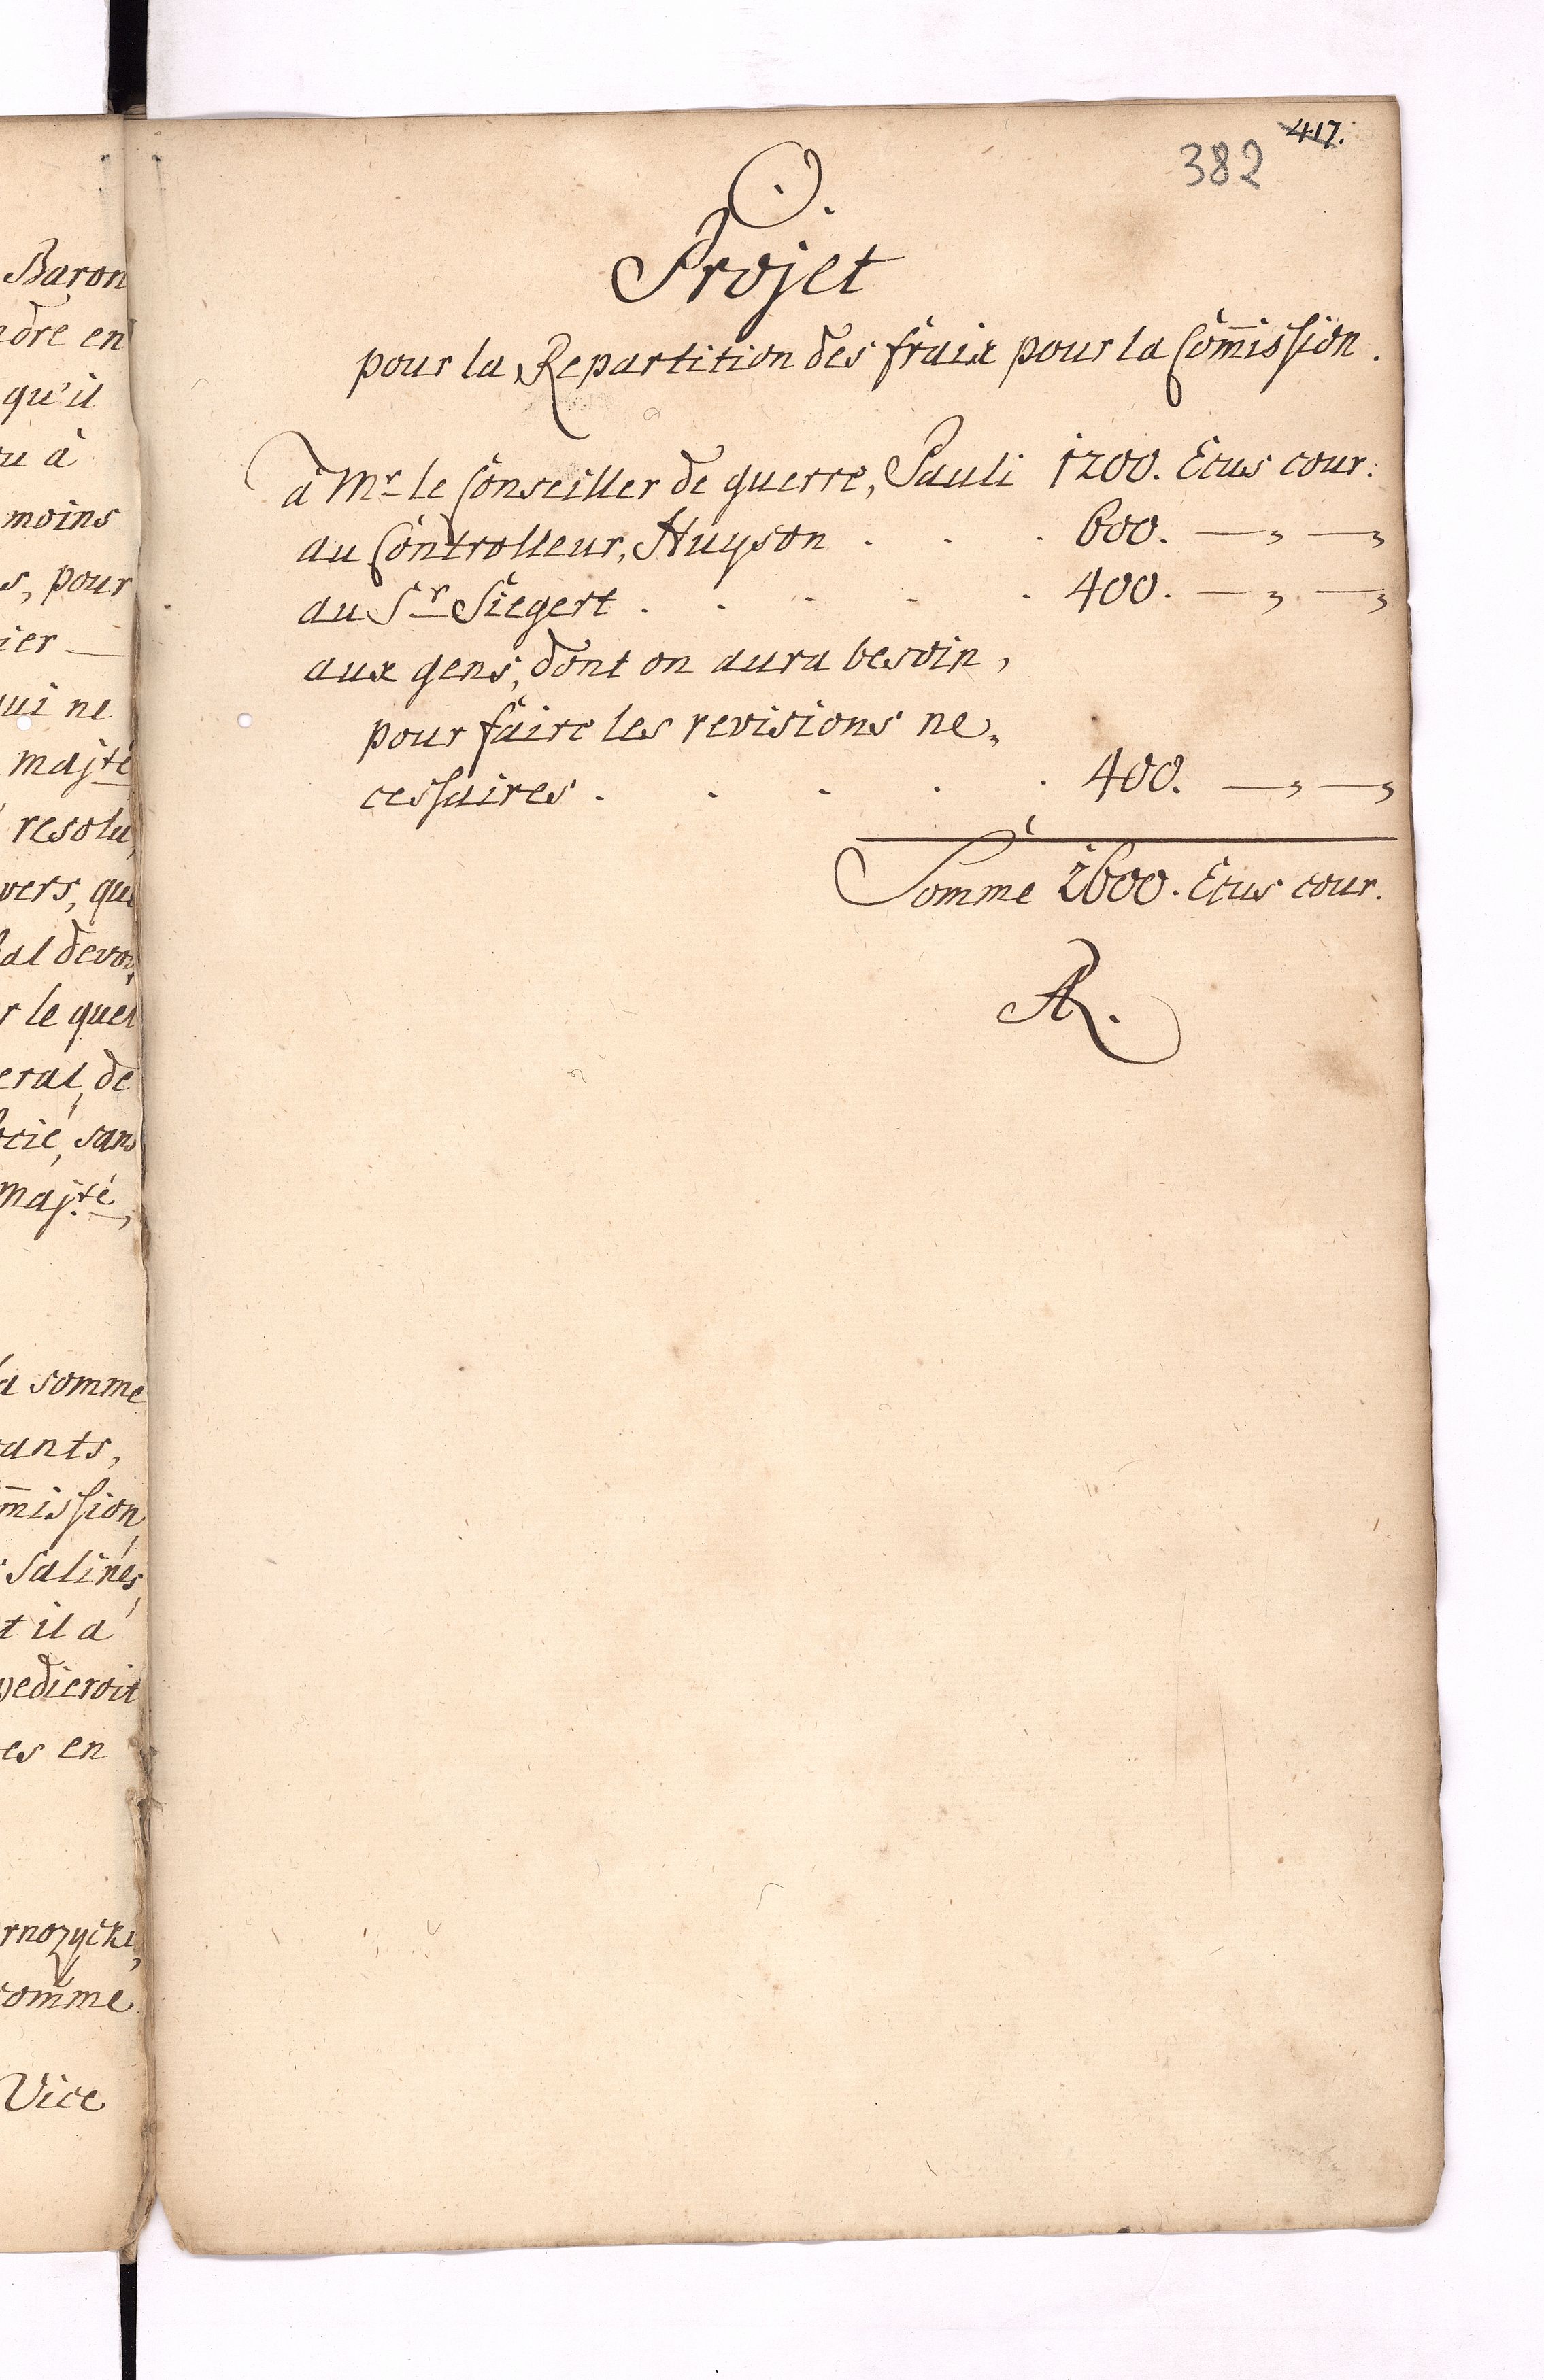 Baron
dre en
qu'il
u à
moins
s, pour
ier —
ui ne
majté
resolu,
vers, que
al devoi,
r le quel
eral, de
ocié, sans
majté,
a somme
tants,
m̄ission,
Salines,
t il a
pedieroit
es en
rnozycki,
com̄me
Vice
417.
382
Projet
pour la Repartition des fraix pour la Com̄ission.
à Mr le Conseiller de guerre, Pauli 1200. Ecus cour:
au Controlleur, Huyson . . . 600. —,, —,,
au Sr Siegert . . . . . 400. —,, —,,
aux gens, dont on aura besoin,
pour faire les revisions ne,,
cessaires . . . . . 400. —,, —,,
Somme 2600. Ecus cour.
AR.